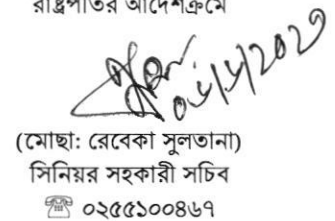 রাষ্ট্রপতির আদেশক্রমে
(মোছা: রেবেকা সুলতানা)
সিনিয়র সহকারী সচিব
☎ ০২৫৫১০০৪৬৭